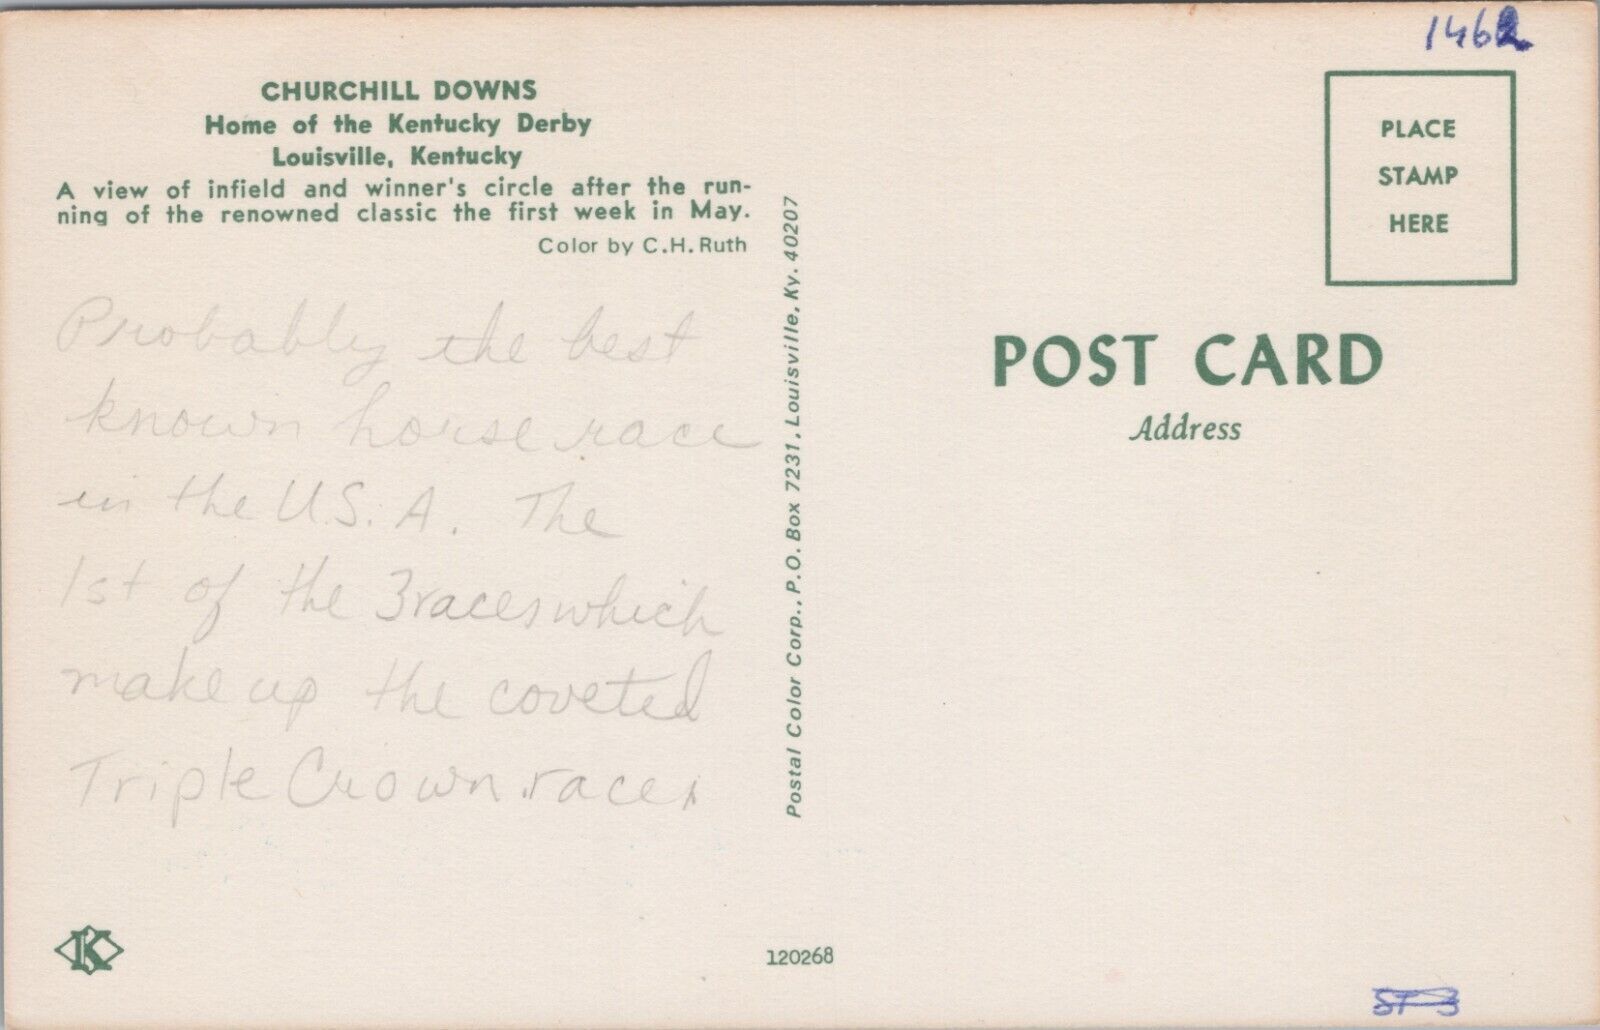 1462
CHURCHILL DOWNS
Home of the Kentucky Derby
Louisville, Kentucky
A view of infield and winner's circle after the run-
ning of the renowned classic the first week in May.
Color by C.H. Ruth
Probably the best
known horse race
in the U.S.A. The
1st of the 3 races which
make up the coveted
Triple Crown races
K
Postal Color Corp., P.O. Box 7231, Louisville, Ky. 40207
120268
PLACE
STAMP
HERE
POST CARD
Address
ST 3